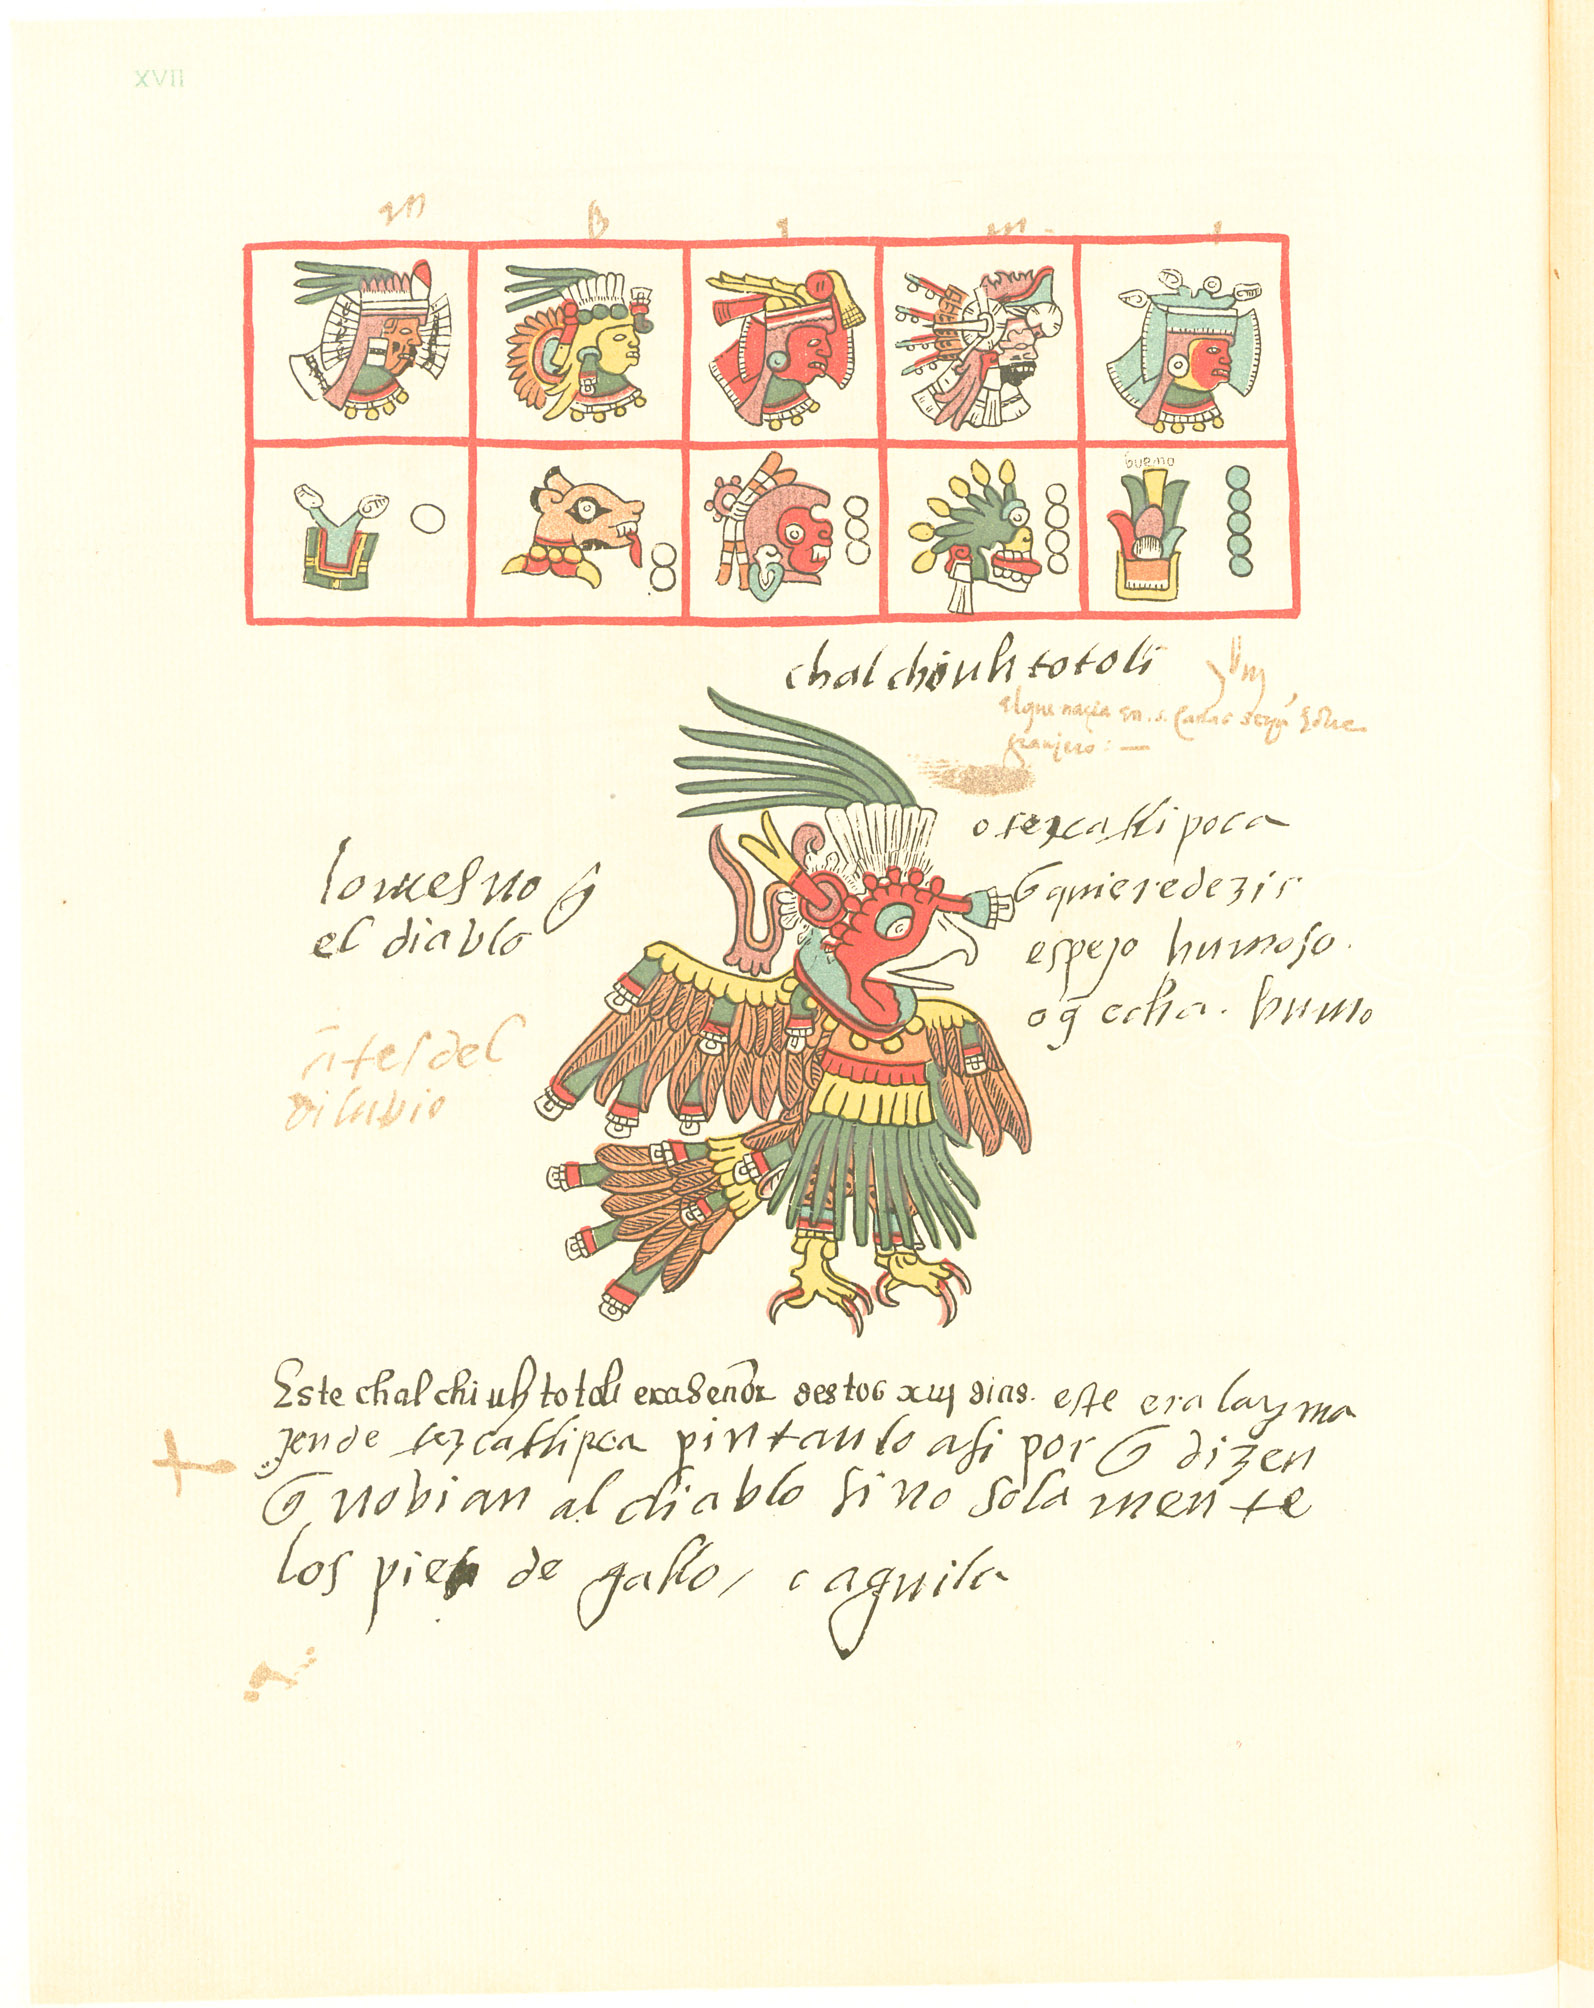 XVII
m b i m i
bueno
chalchiuhtotoli
El que nacia en .5. cañas
granjero:—
o tezcatlipoca
q̃ quiere dezir
espejo humoso.
o q̃ echa. humo
lo mesmo q̃
el diablo
ãtes del
dilubio
Este chalchiuhtotoli era señor destos xiij dias. este era la yma
jen de tezcatlipoca pintanlo asi por q̃ dizen
q̃ no bian al diablo sino sola mente
los pies de gallo, o aguila